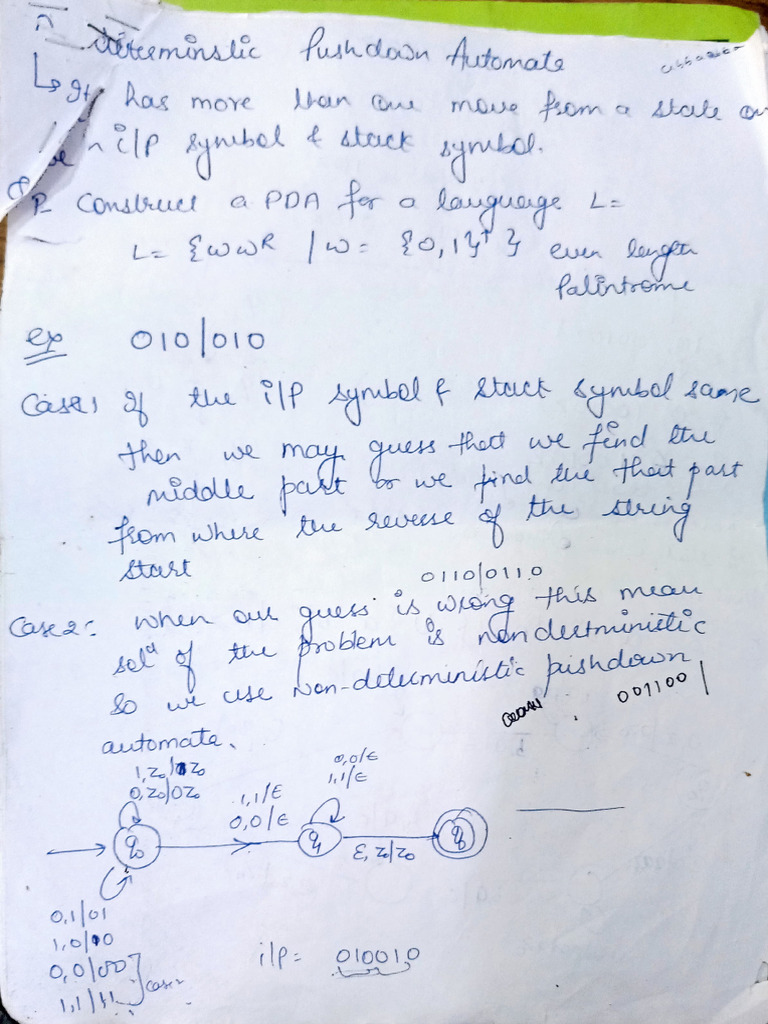 deterministic Pushdown Automate
↳ It has more than one move from a state on
i/P symbol & stack symbol.
Construct a PDA for a language L=
L= {ωω^R | ω = {0,1}^+ } even length
Palintrome
ex 010/010
Case1 If the i/P symbol & stack symbol same
then we may guess that we find the
middle part or we find the that part
from where the reverse of the string
start
0110/0110
Case2: When our guess is wrong this mean
sol^n of the problem is nondeterministic
So we use Non-deterministic pushdown
001100
automate.
1,z0/1z0
0,z0/0z0
1,1/ε
0,0/ε
0,0/ε
1,1/ε
q0
q1
ε, z0/z0
0,1/01
1,0/10
0,0/00
1,1/11
case2
i/P= 010010